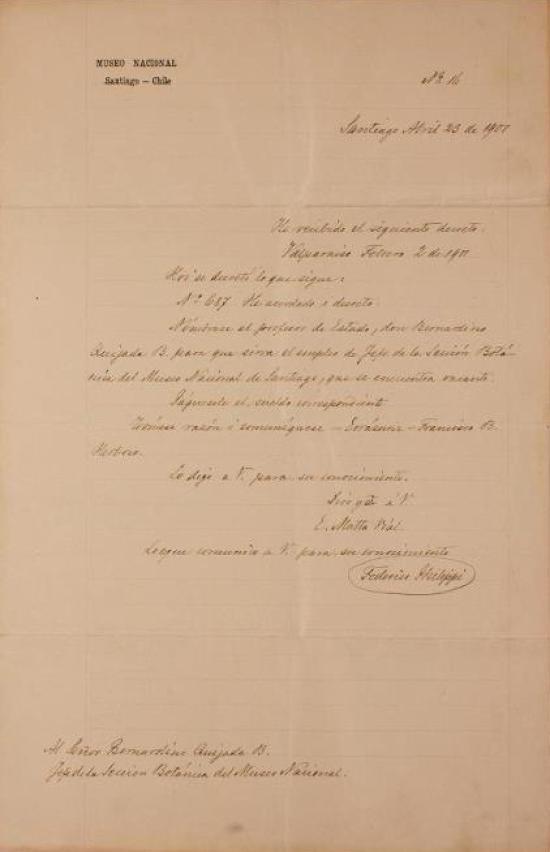 MUSEO NACIONAL
Santiago — Chile
Nº 16
Santiago Abril 23 de 1901
He recibido el siguiente decreto.
Valparaiso Febrero 2 de 1901
Hoi se decretó lo que sigue:
Nº 687. He acordado i decreto:
Nómbrase al profesor de Estado, don Bernardino
Quijada B. para que sirva el empleo de Jefe de la Sección Botá-
nica del Museo Nacional de Santiago, que se encuentra vacante.
Páguesele el sueldo correspondiente
Tómese razón i comuníquese — Errázuriz — Francisco B.
Herboso.
Lo digo a V. para su conocimiento.
Dios gde a V.
E. Matta Vial.
Lo que comunico a V. para su conocimiento
Federico Philippi
Al Señor Bernardino Quijada B.
Jefe de la Seccion Botánica del Museo Nacional.